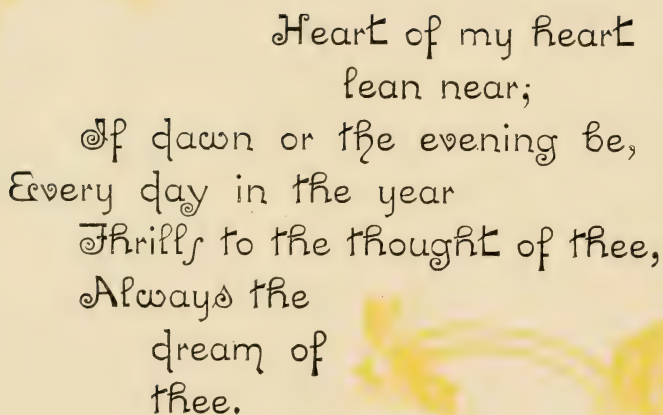 Heart of my heart
lean near;
If dawn or the evening be,
Every day in the year
Thrills to the thought of thee,
Always the
dream of
thee.